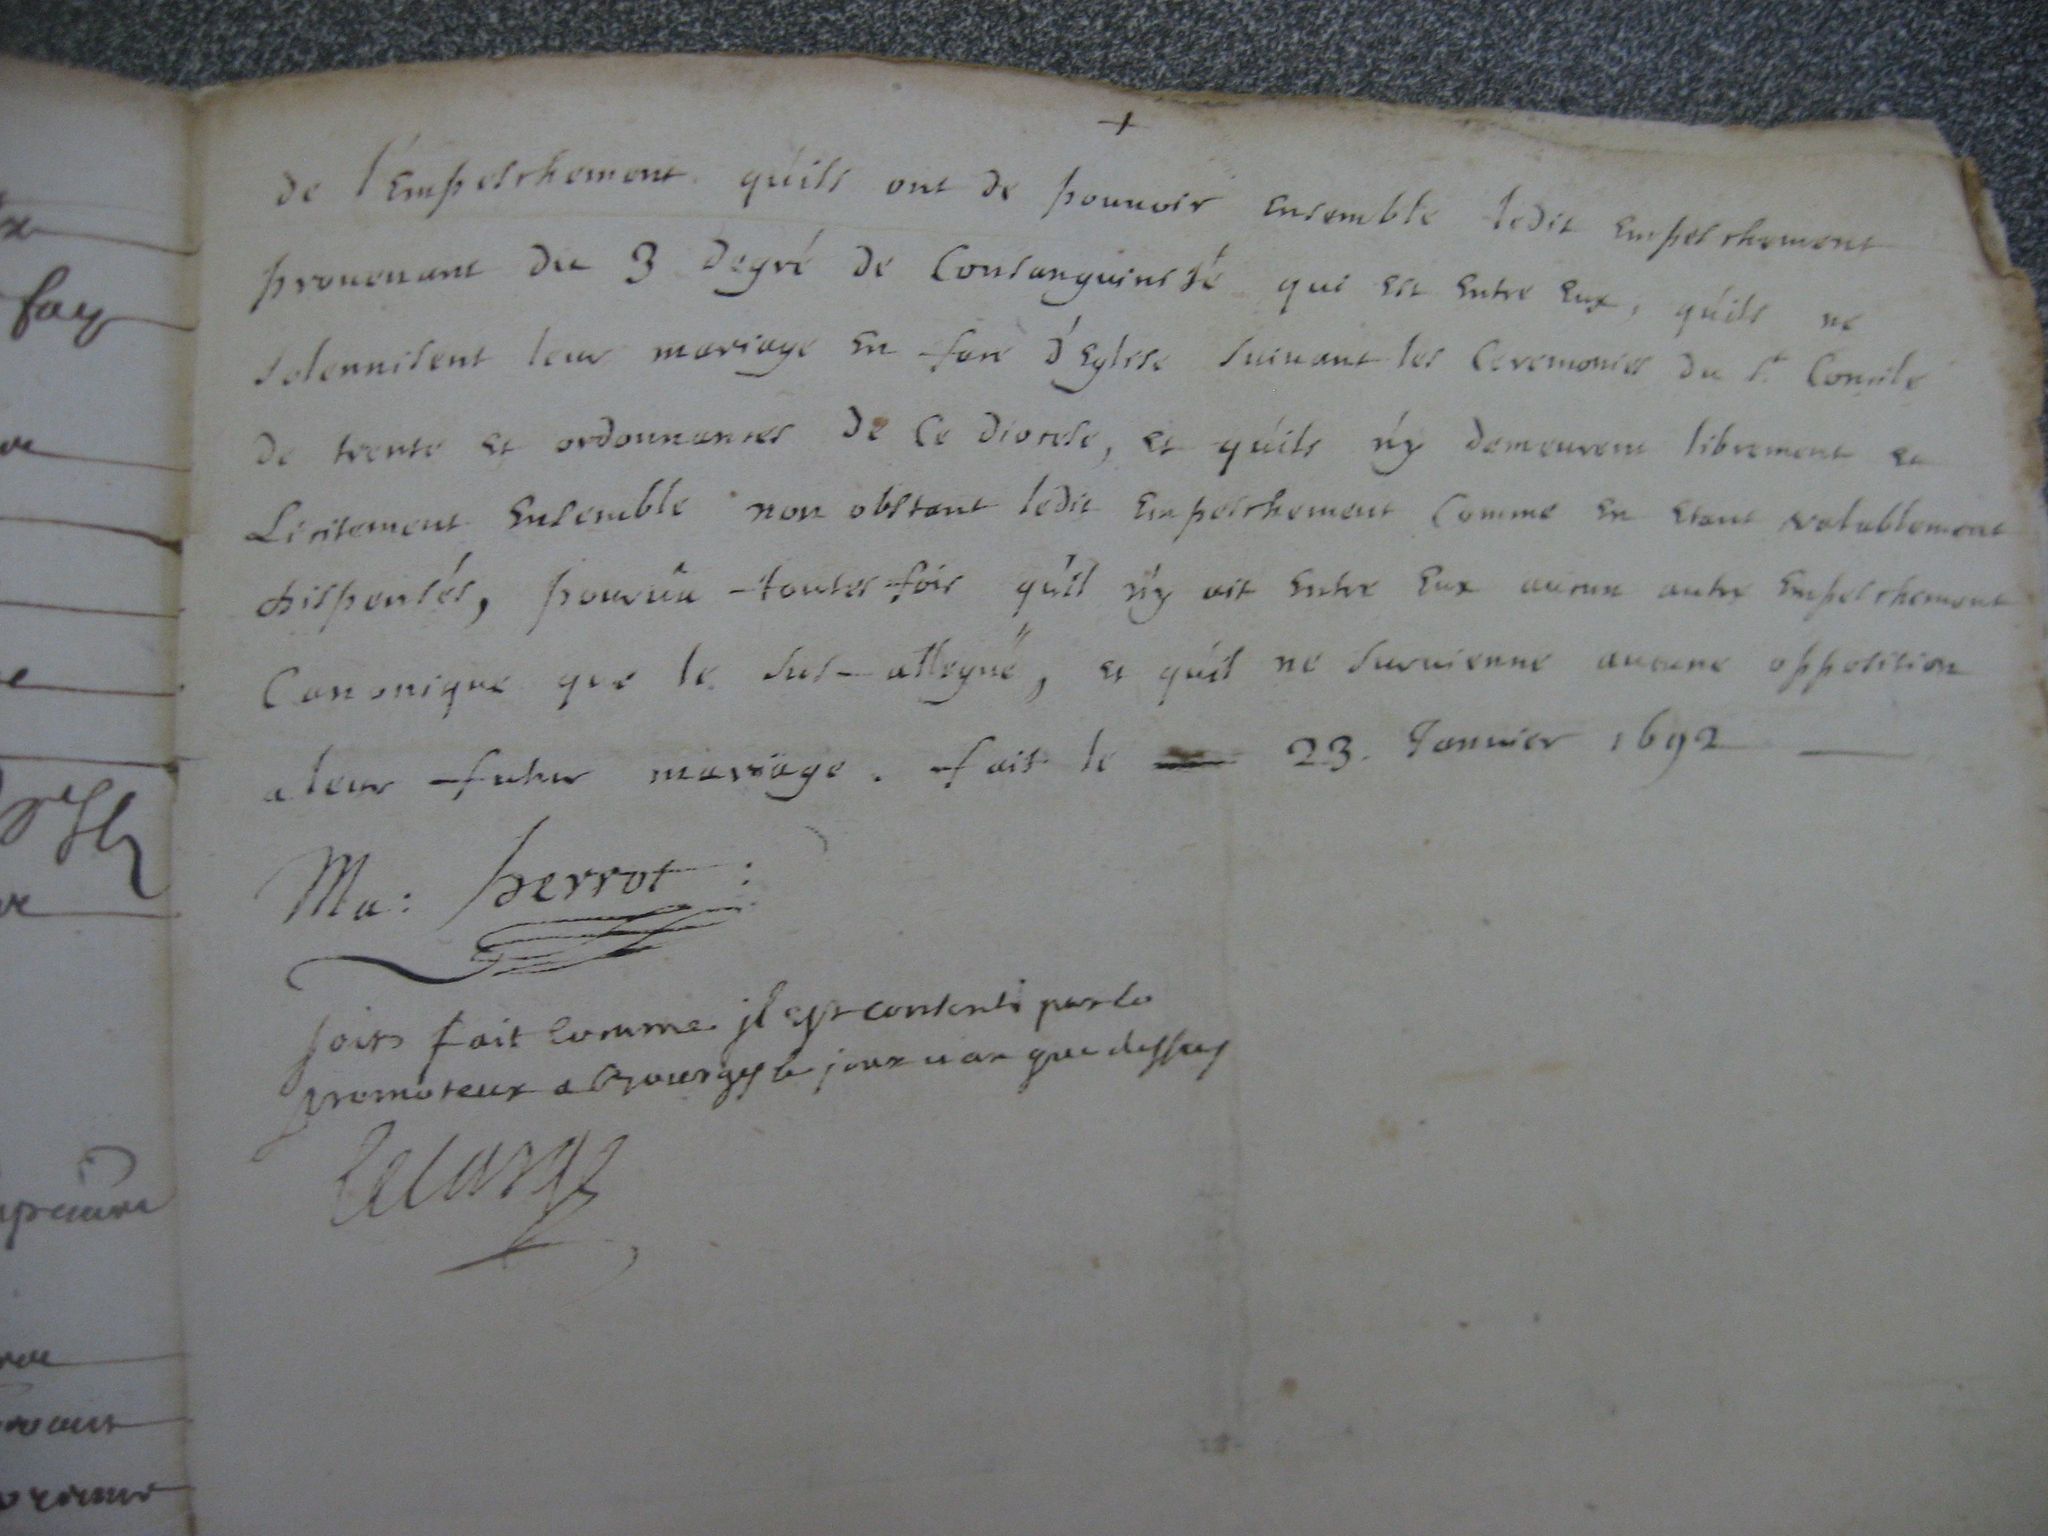 +
de l'Empeschement qu'ils ont de pouuoir ensemble ledit empeschement
prouenant du 3 degré de Consanguinité qui est entre eux, qu'ils ne
solennisent leur mariage en face d'Eglise suiuant les Ceremonies du st Concile
de trente et ordonnances de ce diocese, et qu'ils n'y demeurent librement et
Licitement ensemble non obstant ledit empeschement comme en etant valablement
dispensés, pouruû toutes-fois qu'il n'y ait entre eux aucun autre empeschement
Canonique que le sus-allegué, et qu'il ne suruienne aucune opposition
a leur futur mariage. fait le 23. Januier 1692
Ma: perrot :
soit fait comme jl est consenti par le
promoteur a bourges le jour et an que dessus
Lelarge
fay